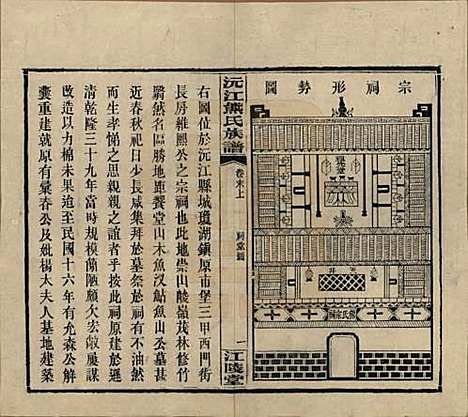 宗祠形勢圖
熊氏宗祠
沅江熊氏族譜
卷末上
祠堂圖
一
江陵堂
右圖位於沅江縣城瓊湖鎮原市堡三甲西門街
長房維熙公之宗祠也此地崇山陵嶺茂林修竹
翳然名區勝地距饗堂山木魚漢鮎魚山公墓甚
近春秋祀日少長咸集拜於墓祭於祠有不油然
而生孝悌之思親親之誼者乎此祠原建於遜
清乾隆三十九年當時規模簡陋頗欠宏敞屢謀
改造以力棉未果迨至民國十六年有允森公倡
囊重建就原有彙春公及妣楊太夫人墓地建築